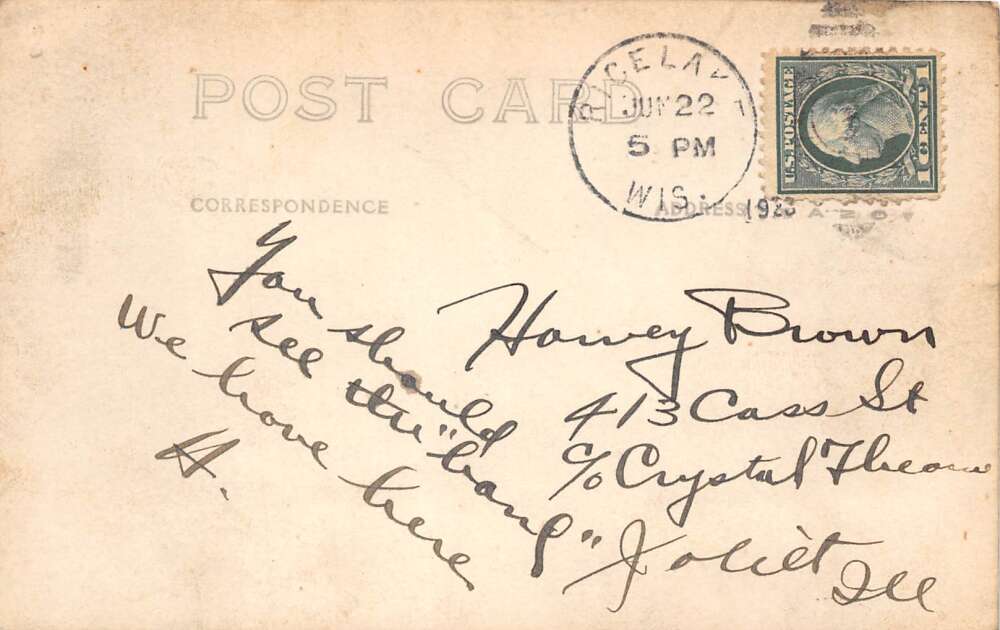 POST CARD
RICE LAKE
JUN 22
5 PM
WIS.
192
U.S. POSTAGE
1 CENT 1
CORRESPONDENCE
ADDRESS
You should
see the "band"
We have here
H.
Harvey Brown
413 Cass St
c/o Crystal Theatre
Joliet
Ill